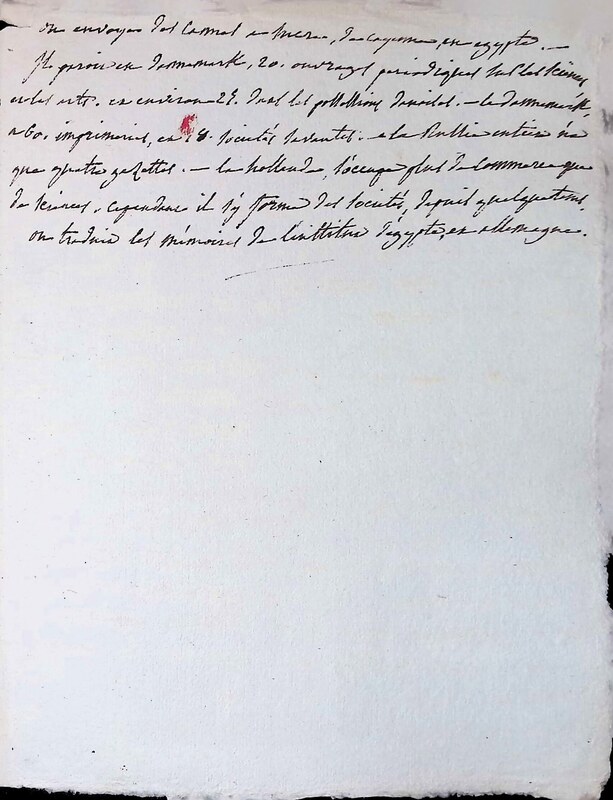 on envoya des cannes a sucre, de cayenne, en egypte. —
Il paroit en dannemark, 20. ouvrages periodiques sur les sciences
et les arts. et environ 25. dans les possessions danoises. — le dannemark,
a 60. imprimeries, et 18. sociétés savantes. — la Russie entière n'a
que quatre gazettes. — la hollande, s'occupe plus de commerce que
de sciences. cependant il s'y forme des sociétés, depuis quelque tems.
on traduit les mémoires de l'institut d'égypte, en allemagne.